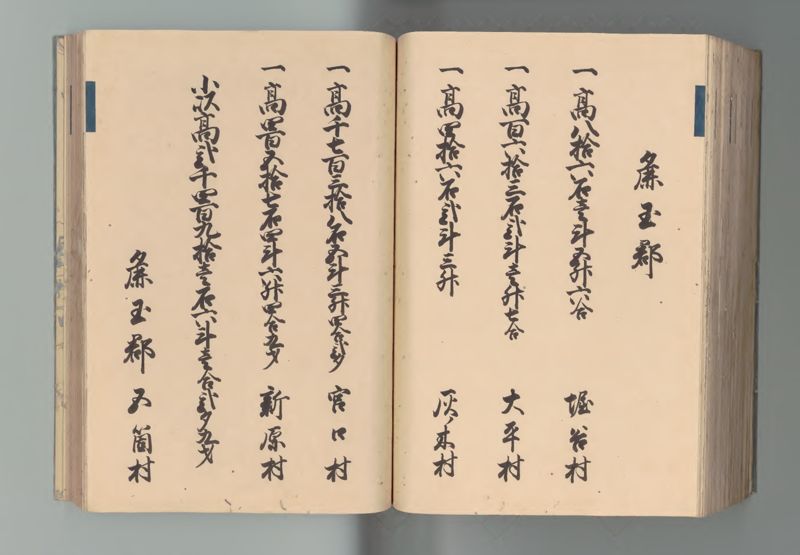 麁玉郡
一高八拾六石壱斗五升六合 堀谷村
一高百六拾三石弐斗壱升七合 大平村
一高四拾六石弐斗三升 灰ノ木村
一高千七百三拾八石五斗三升四合弐夕 宮口村
一高四百五拾七石四斗六升四合九才 新原村
小以高弐千四百九拾壱石六斗壱合弐夕九才
麁玉郡五箇村